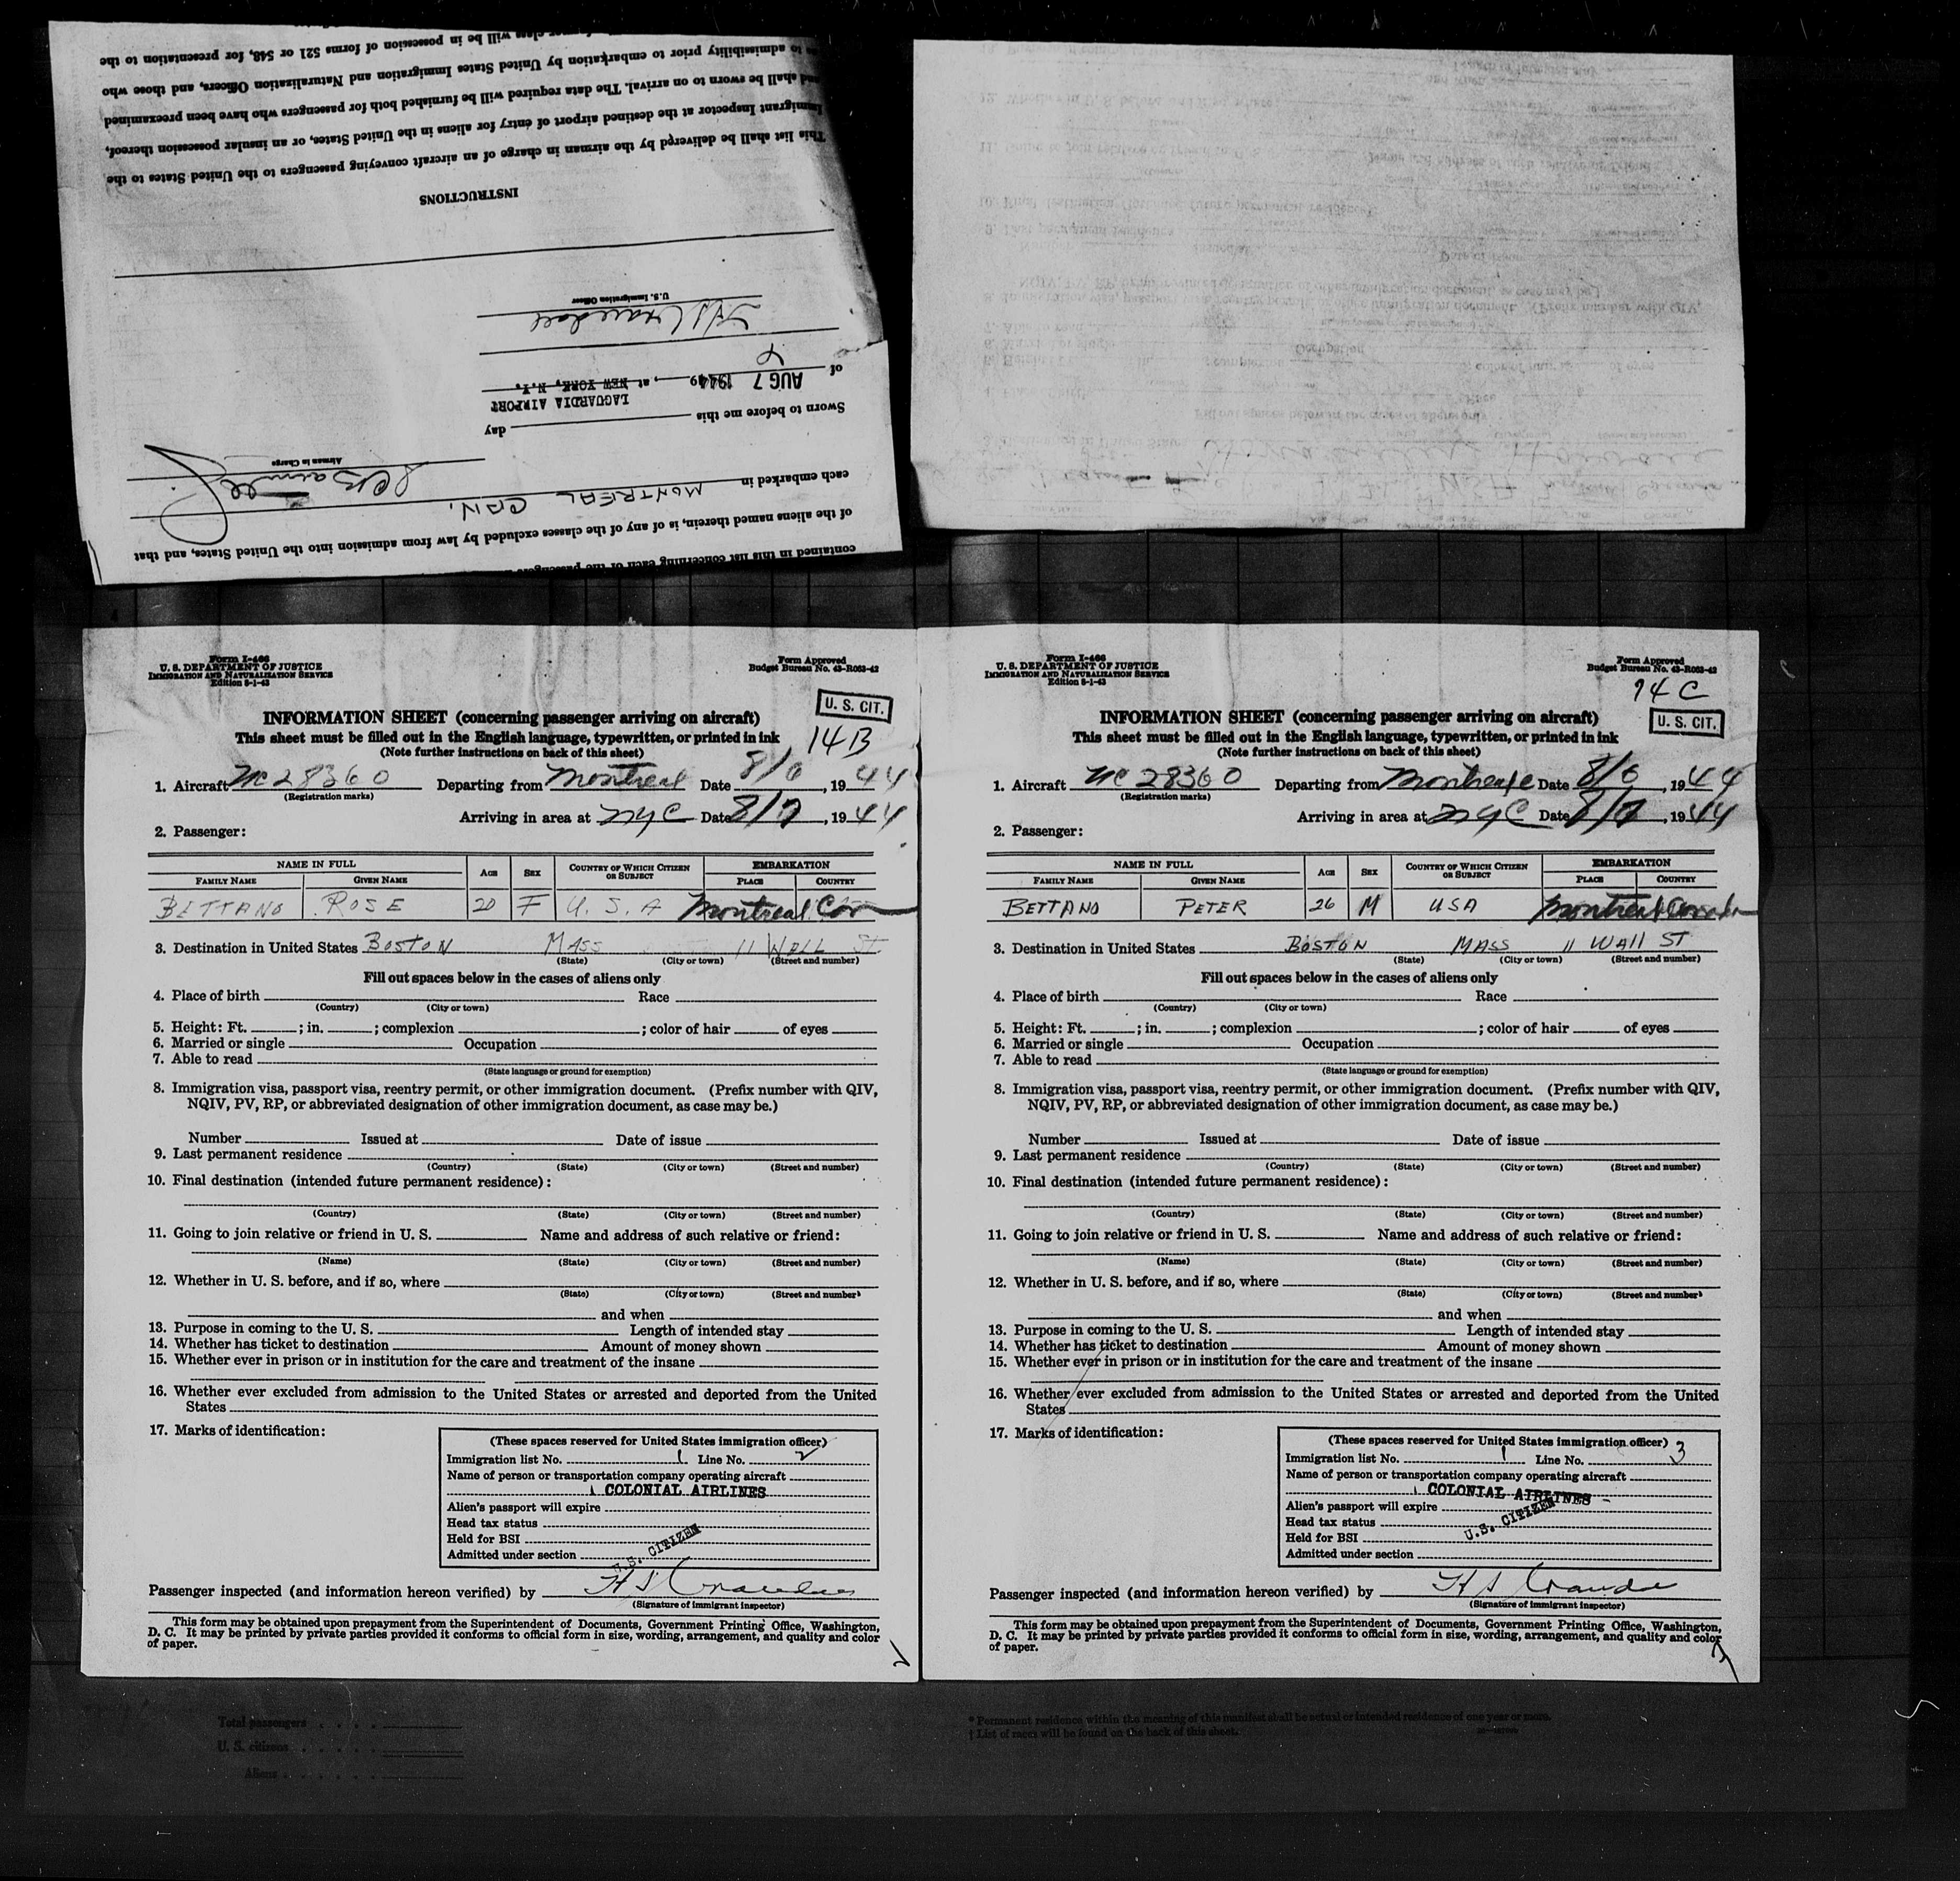 former class will be in possession of forms 521 or 548, for presentation to the
as to admissibility prior to embarkation by United States Immigration and Naturalization Officers, and those who
and shall be sworn to on arrival. The data required will be furnished both for passengers who have been preexamined
Immigrant Inspector at the destined airport of entry for aliens in the United States, or an insular possession thereof,
This list shall be delivered by the airman in charge of an aircraft conveying passengers to the United States to the
INSTRUCTIONS
U.S. Immigration Officer
of AUG 7 1944 19, at NEW YORK, N.Y.
LAGUARDIA AIRPORT
Sworn to before me this day
Airman in Charge
each embarked in MONTREAL CAN.
of the aliens named therein, is of any of the classes excluded by law from admission into the United States, and that
contained in this list concerning each of the passengers
Form I-466
U. S. DEPARTMENT OF JUSTICE
IMMIGRATION AND NATURALIZATION SERVICE
Edition 8-1-43
Form Approved
Budget Bureau No. 43-R063-42
U. S. CIT.
INFORMATION SHEET (concerning passenger arriving on aircraft)
This sheet must be filled out in the English language, typewritten, or printed in ink
14B
(Note further instructions on back of this sheet)
1. Aircraft NC 28360 Departing from Montreal Date 8/6, 1944
(Registration marks)
Arriving in area at NYC Date 8/7, 1944
2. Passenger:
NAME IN FULL AGE SEX COUNTRY OF WHICH CITIZEN OR SUBJECT EMBARKATION
FAMILY NAME GIVEN NAME PLACE COUNTRY
BETTANO ROSE 20 F U.S.A Montreal Can
3. Destination in United States BOSTON MASS 11 WALL ST
(State) (City or town) (Street and number)
Fill out spaces below in the cases of aliens only
4. Place of birth Race
(Country) (City or town)
5. Height: Ft. ; in. ; complexion ; color of hair of eyes
6. Married or single Occupation
7. Able to read
(State language or ground for exemption)
8. Immigration visa, passport visa, reentry permit, or other immigration document. (Prefix number with QIV,
NQIV, PV, RP, or abbreviated designation of other immigration document, as case may be.)
Number Issued at Date of issue
9. Last permanent residence
(Country) (State) (City or town) (Street and number)
10. Final destination (intended future permanent residence):
(Country) (State) (City or town) (Street and number)
11. Going to join relative or friend in U. S. Name and address of such relative or friend:
(Name) (State) (City or town) (Street and number)
12. Whether in U. S. before, and if so, where
(State) (City or town) (Street and number)
and when
13. Purpose in coming to the U. S. Length of intended stay
14. Whether has ticket to destination Amount of money shown
15. Whether ever in prison or in institution for the care and treatment of the insane
16. Whether ever excluded from admission to the United States or arrested and deported from the United
States
17. Marks of identification:
(These spaces reserved for United States immigration officer)
Immigration list No. 1 Line No. 2
Name of person or transportation company operating aircraft
COLONIAL AIRLINES
Alien's passport will expire
Head tax status
Held for BSI
Admitted under section
U.S. CITIZEN
Passenger inspected (and information hereon verified) by
(Signature of immigrant inspector)
This form may be obtained upon prepayment from the Superintendent of Documents, Government Printing Office, Washington,
D. C. It may be printed by private parties provided it conforms to official form in size, wording, arrangement, and quality and color
of paper.
Form I-466
U. S. DEPARTMENT OF JUSTICE
IMMIGRATION AND NATURALIZATION SERVICE
Edition 8-1-43
Form Approved
Budget Bureau No. 43-R063-42
14 C
U. S. CIT.
INFORMATION SHEET (concerning passenger arriving on aircraft)
This sheet must be filled out in the English language, typewritten, or printed in ink
(Note further instructions on back of this sheet)
1. Aircraft NC 28360 Departing from Montreal Date 8/6, 1944
(Registration marks)
Arriving in area at NYC Date 8/7, 1944
2. Passenger:
NAME IN FULL AGE SEX COUNTRY OF WHICH CITIZEN OR SUBJECT EMBARKATION
FAMILY NAME GIVEN NAME PLACE COUNTRY
BETTANO PETER 26 M USA Montreal Canada
3. Destination in United States BOSTON MASS 11 WAll ST
(State) (City or town) (Street and number)
Fill out spaces below in the cases of aliens only
4. Place of birth Race
(Country) (City or town)
5. Height: Ft. ; in. ; complexion ; color of hair of eyes
6. Married or single Occupation
7. Able to read
(State language or ground for exemption)
8. Immigration visa, passport visa, reentry permit, or other immigration document. (Prefix number with QIV,
NQIV, PV, RP, or abbreviated designation of other immigration document, as case may be.)
Number Issued at Date of issue
9. Last permanent residence
(Country) (State) (City or town) (Street and number)
10. Final destination (intended future permanent residence):
(Country) (State) (City or town) (Street and number)
11. Going to join relative or friend in U. S. Name and address of such relative or friend:
(Name) (State) (City or town) (Street and number)
12. Whether in U. S. before, and if so, where
(State) (City or town) (Street and number)
and when
13. Purpose in coming to the U. S. Length of intended stay
14. Whether has ticket to destination Amount of money shown
15. Whether ever in prison or in institution for the care and treatment of the insane
16. Whether ever excluded from admission to the United States or arrested and deported from the United
States
17. Marks of identification:
(These spaces reserved for United States immigration officer)
Immigration list No. 1 Line No. 3
Name of person or transportation company operating aircraft
COLONIAL AIRLINES
Alien's passport will expire
U.S. CITIZEN
Head tax status
Held for BSI
Admitted under section
Passenger inspected (and information hereon verified) by
(Signature of immigrant inspector)
This form may be obtained upon prepayment from the Superintendent of Documents, Government Printing Office, Washington,
D. C. It may be printed by private parties provided it conforms to official form in size, wording, arrangement, and quality and color
of paper.
Total passengers
U. S. citizens
Aliens
* Permanent residence within the meaning of this manifest shall be actual or intended residence of one year or more.
† List of races will be found on the back of this sheet.